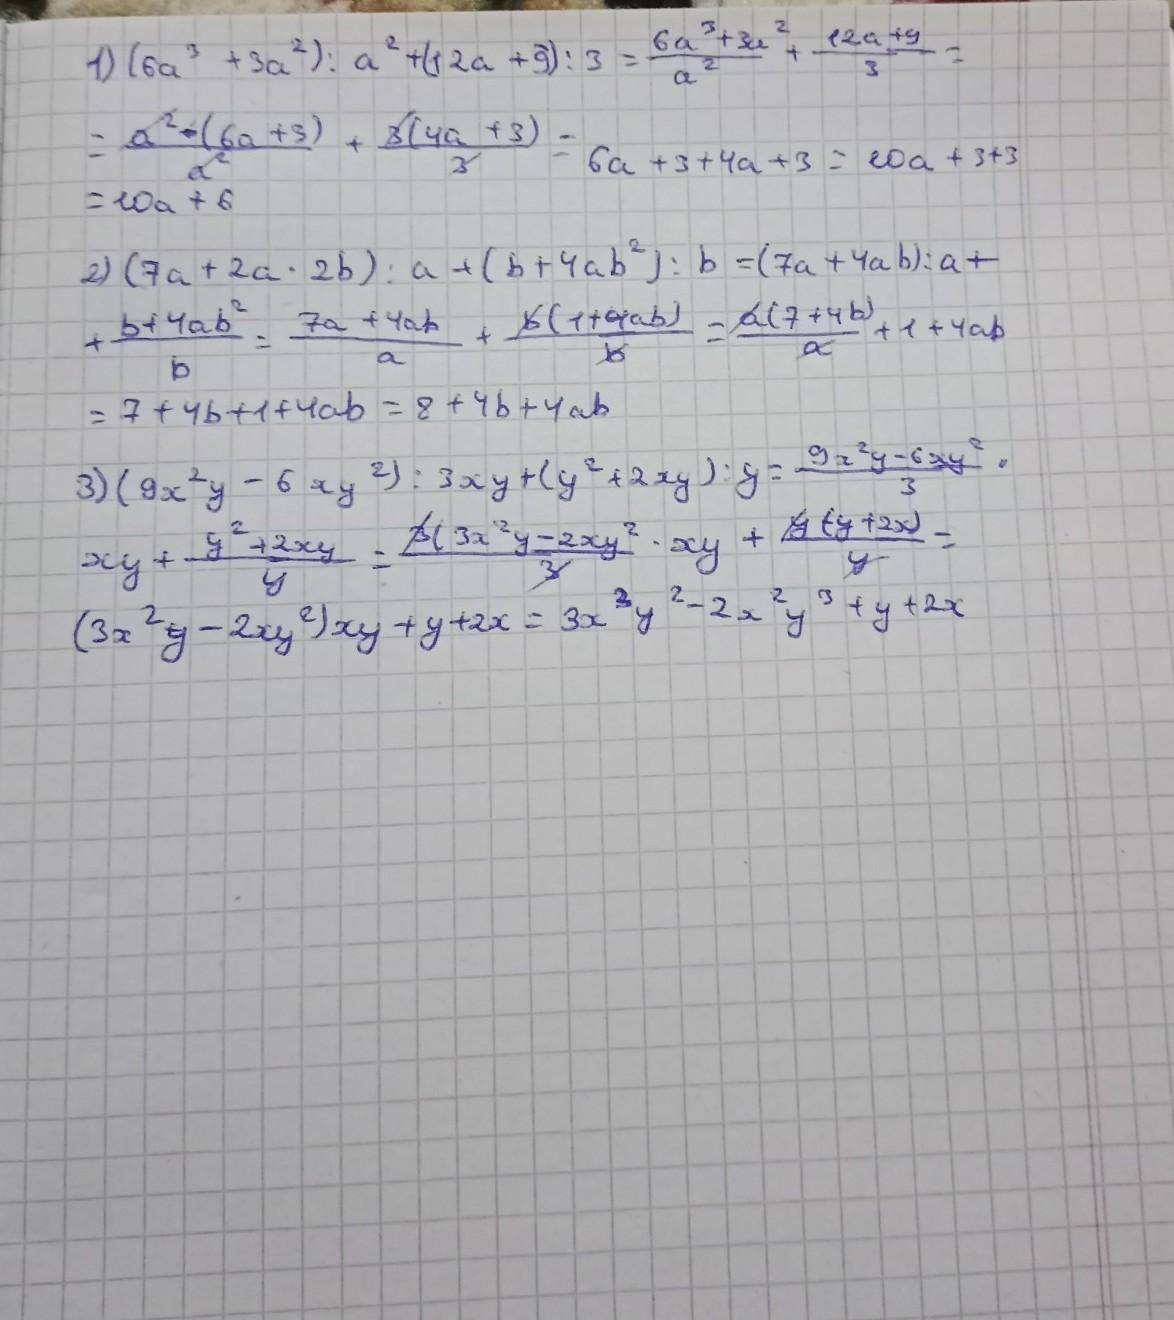 1) (6a³ + 3a²) : a² + (12a + 9) : 3 = (6a³ + 3a²)/a² + (12a + 9)/3 =
= a²·(6a + 3)/a² + 3(4a + 3)/3 = 6a + 3 + 4a + 3 = 10a + 3 + 3
= 10a + 6
2) (7a + 2a · 2b) : a + (b + 4ab²) : b = (7a + 4ab) : a +
+ (b + 4ab²)/b = (7a + 4ab)/a + b(1 + 4ab)/b = a(7 + 4b)/a + 1 + 4ab
= 7 + 4b + 1 + 4ab = 8 + 4b + 4ab
3) (9x²y − 6xy²) : 3xy + (y² + 2xy) : y = (9x²y − 6xy²)/3 ·
xy + (y² + 2xy)/y = 3(3x²y − 2xy²/3 · xy + y(y + 2x)/y =
(3x²y − 2xy²)xy + y + 2x = 3x³y² − 2x²y³ + y + 2x